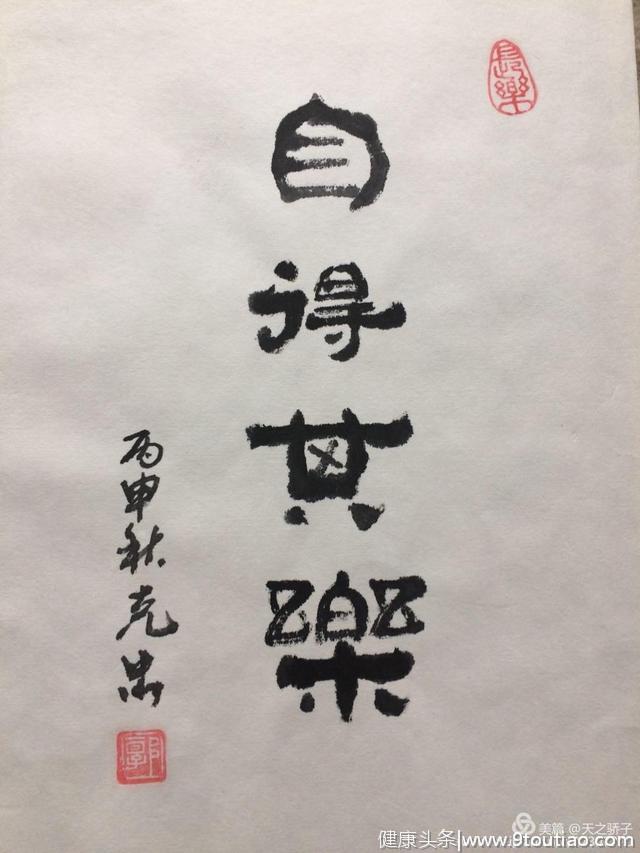 長樂
自得其樂
丙申秋克忠
郭
美篇 @天之骄子
健康头条|www.9toutiao.com